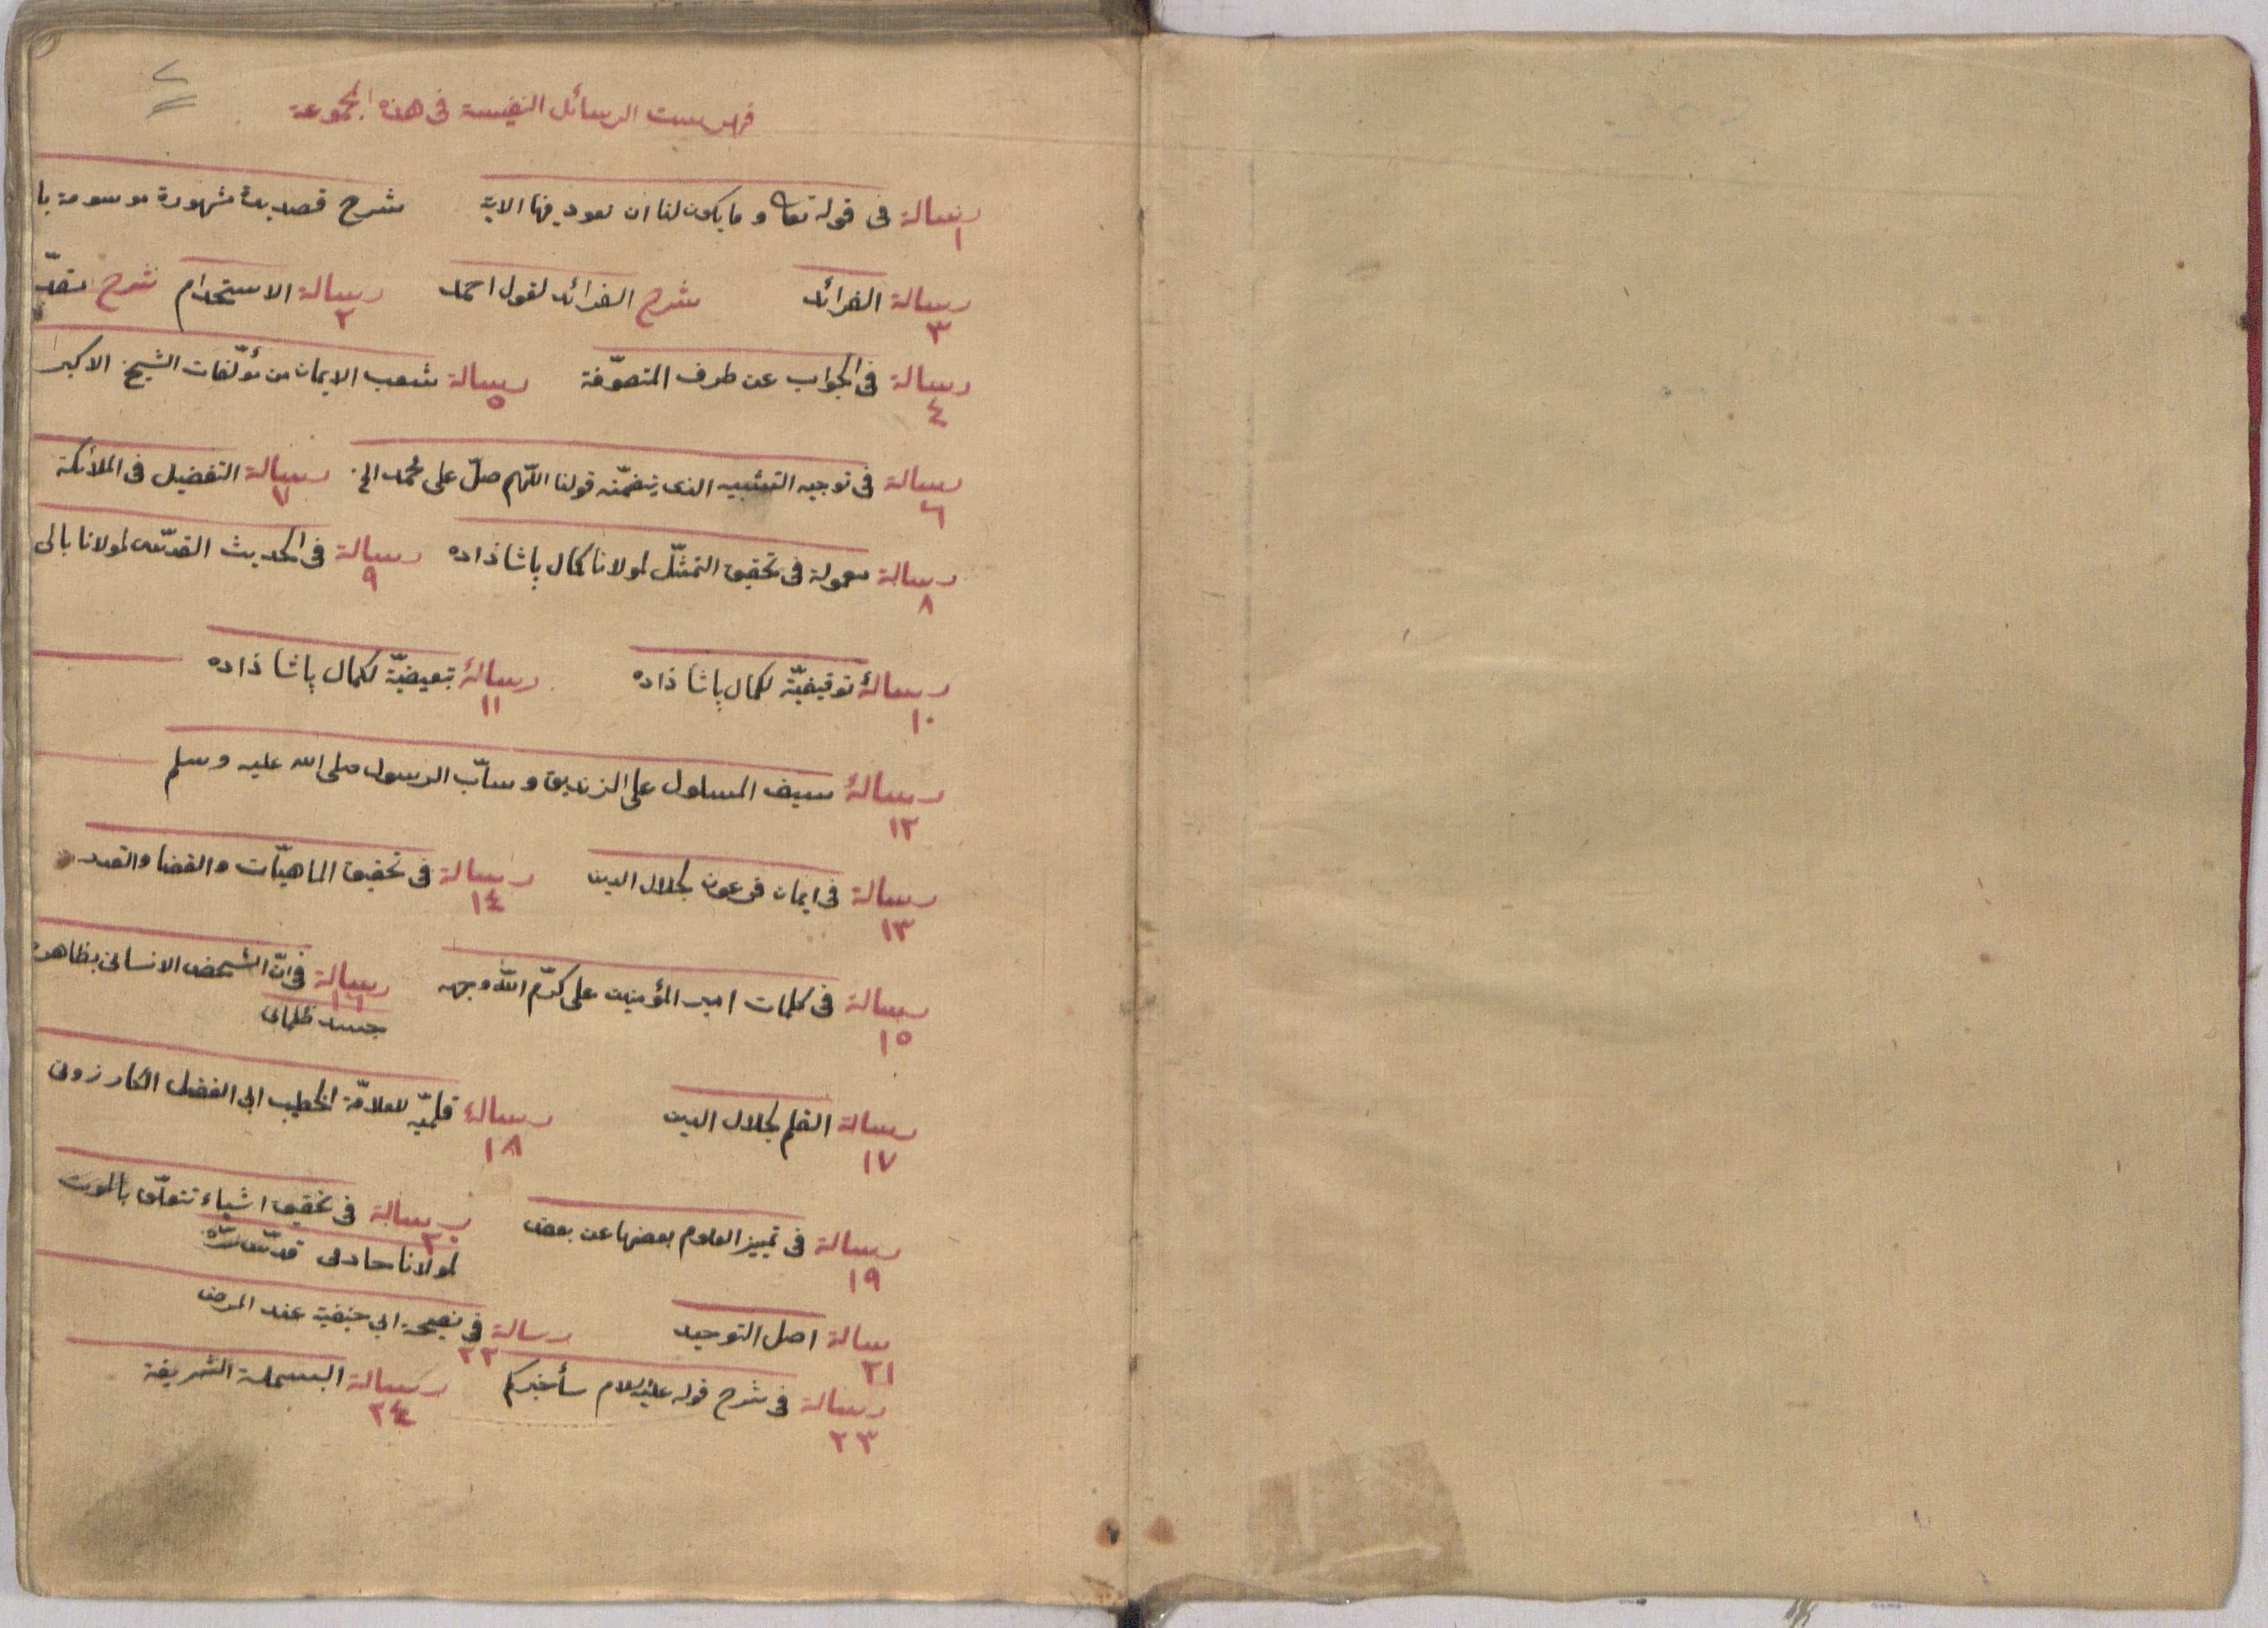 فهرست الرسائل النفيسة في هذه المجموعة
رسالة في قوله تعا وما يكون لنا ان نعود فيها الاية شرح قصيدة مشهورة موسومة با
١
رسالة الفرائد شرح الفرائد لقول احمد رسالة الاستخدام شرح
٣ ٢
رسالة في الجواب عن طرف المتصوّفة رسالة شعب الايمان من مؤلّفات الشيخ الاكبر
٤ ٥
رسالة في توجيه التشبيه الذى يتضمّنه قولنا اللّهم صلّ على محمد الخ رسالة التفضيل في الملائكة
٦ ٧
رسالة معمولة في تحقيق التمثّل لمولانا كمال پاشا زاده رسالة في الحديث القدسّى لمولانا بالى
٨ ٩
رسالۀ توقيفيّة لكمال پاشا زاده رسالۀ تبعيضيّة لكمال پاشا زاده
١٠ ١١
رسالۀ سيف المسلول على الزنديق وسابّ الرسول صلى الله عليه وسلم
١٢
رسالة في ايمان فرعون لجلال الدين رسالة في تحقيق الماهيّات والقضا والقدر
١٣ ١٤
رسالة في كلمات امير المؤمنين على كرّم اللّه وجهه رسالة في انّ الشخص الانسانى بظاهره
١٥ ١٦
جسد ظلمانى
رسالة القلم لجلال الدين رسالۀ قلميّه للعلامّة الخطيب ابى الفضل الكازرونى
١٧ ١٨
رسالة في تمييز العلوم بعضها عن بعض رسالة في تحقيق اشياء تتعلّق بالموت
١٩ ٢٠
لمولانا قدّس سرّه
رسالة اصل التوحيد رسالة في نصيحة ابى حنيفة عند المرض
٢١ ٢٢
رسالة في شرح قوله عليه السلام سأخبركم رسالة البسملة الشريفة
٢٣ ٢٤